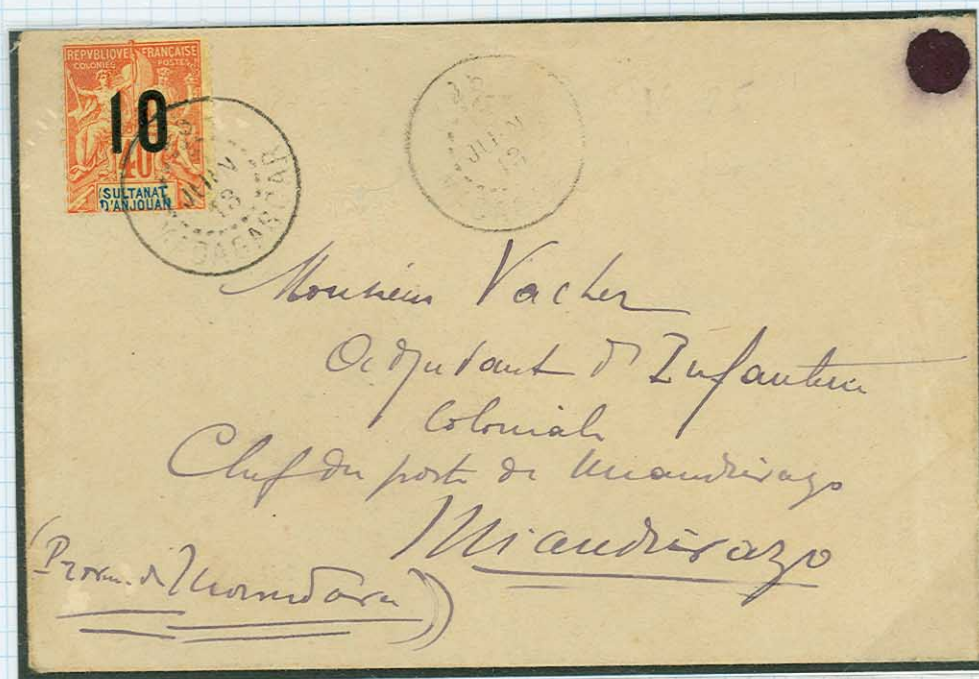 REPVBLIQVE FRANÇAISE
COLONIES POSTES
10
40
SULTANAT
D'ANJOUAN
JUIN
13
MADAGASCAR
JUIN
Monsieur Vacher
Adjudant d'Infanterie
Coloniale
Chef du poste de Miandrivazo
Miandrivazo
(Prov. de Morondava)